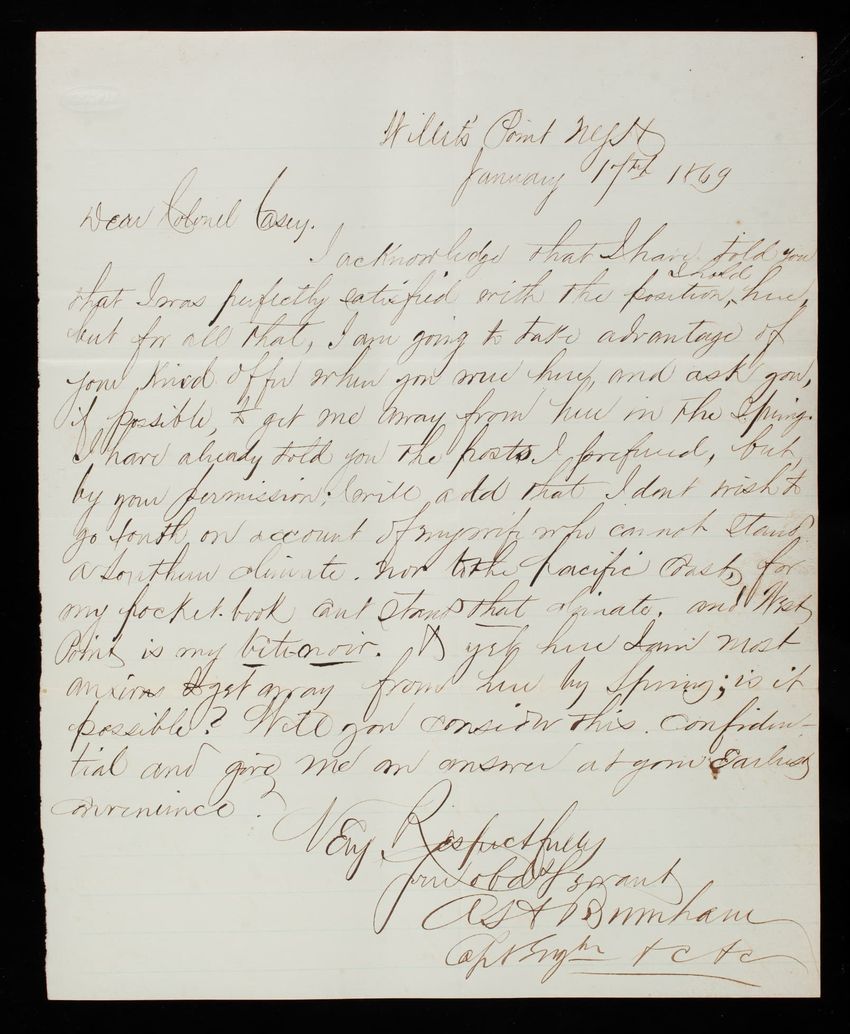 Willets Point NYH
January 17th 1869
Dear Colonel Casey.
I acknowledge that I have told you
that I was perfectly satisfied with the position, I hold here,
but for all that, I am going to take advantage of
your kind offer when you were here, and ask you,
if possible, to get me away from here in the Spring.
I have already told you the posts I preferred, but
by your permission, I will add that I dont wish to
go South on account of my wife who cannot stand
a Southern climate. Nor to the Pacific Coast, for
my pocket-book cant stand that climate. and West
Point is my bete-noir. & yet here I am most
anxious to get away from here by Spring; is it
possible? Will you consider this confiden-
tial and give me an answer at your Earliest
convenience?
Very Respectfully
Your obdt Servant
A H Burnham
Capt Engrs &c &c